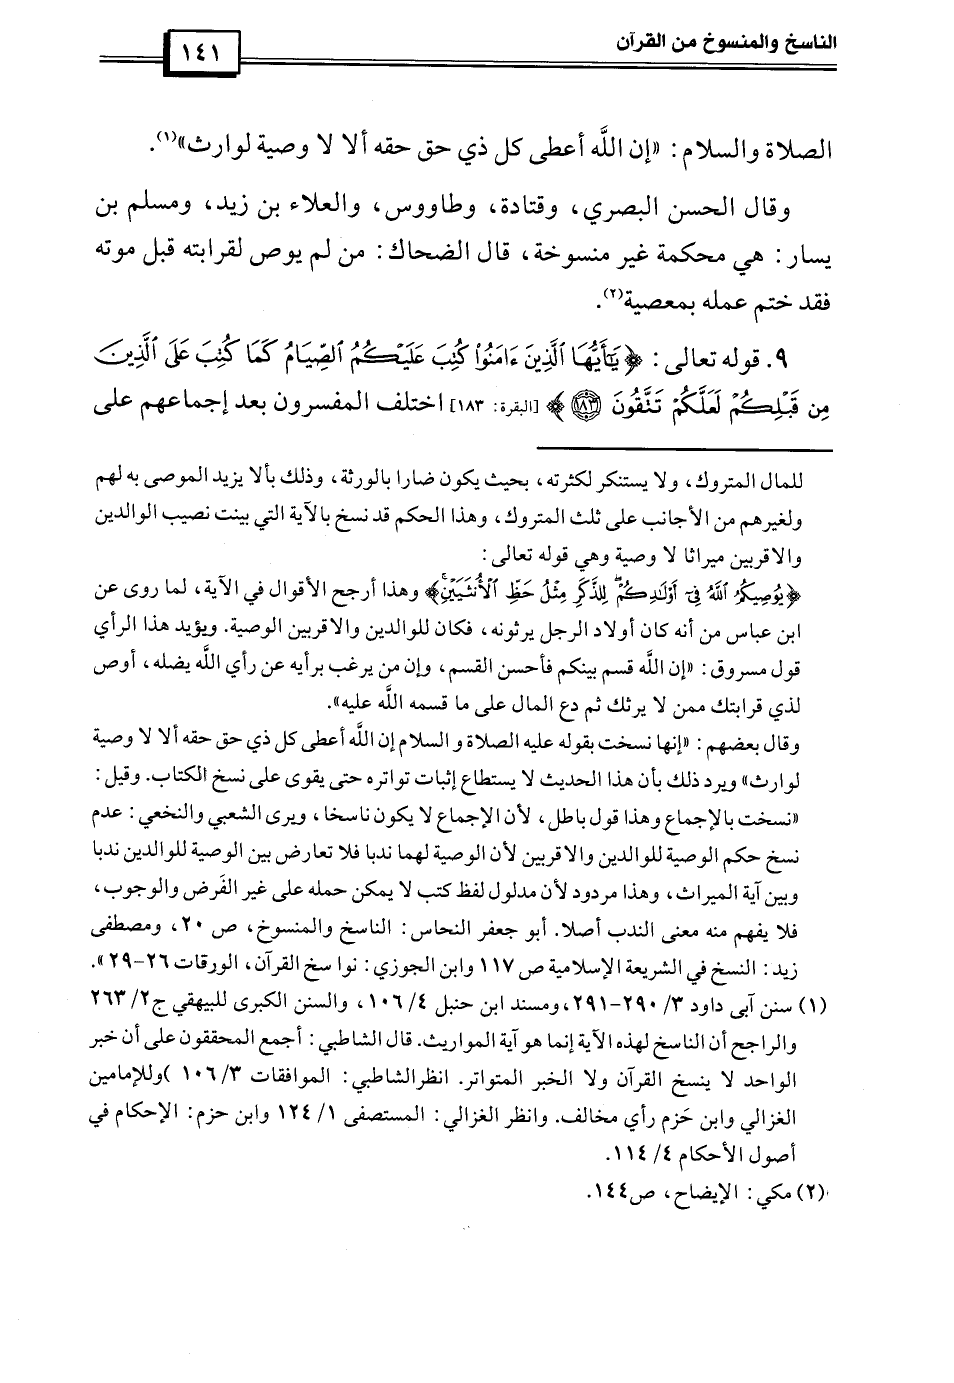 الناسخ والمنسوخ من القرآن
١٤١
الصلاة والسلام: «إن اللَّه أعطى كل ذي حق حقه ألا لا وصية لوارث»(١).
وقال الحسن البصري، وقتادة، وطاووس، والعلاء بن زيد، ومسلم بن
يسار: هي محكمة غير منسوخة، قال الضحاك: من لم يوص لقرابته قبل موته
فقد ختم عمله بمعصية(٢).
٩. قوله تعالى: ﴿يَٰٓأَيُّهَا ٱلَّذِينَ ءَامَنُوا۟ كُتِبَ عَلَيْكُمُ ٱلصِّيَامُ كَمَا كُتِبَ عَلَى ٱلَّذِينَ
مِن قَبْلِكُمْ لَعَلَّكُمْ تَتَّقُونَ ۝١٨٣﴾ [البقرة: ١٨٣] اختلف المفسرون بعد إجماعهم على
للمال المتروك، ولا يستنكر لكثرته، بحيث يكون ضارا بالورثة، وذلك بألا يزيد الموصى به لهم
ولغيرهم من الأجانب على ثلث المتروك، وهذا الحكم قد نسخ بالآية التي بينت نصيب الوالدين
والاقربين ميراثا لا وصية وهي قوله تعالى:
﴿يُوصِيكُمُ ٱللَّهُ فِىٓ أَوْلَٰدِكُمْ ۖ لِلذَّكَرِ مِثْلُ حَظِّ ٱلْأُنثَيَيْنِ ۚ﴾ وهذا أرجح الأقوال في الآية، لما روى عن
ابن عباس من أنه كان أولاد الرجل يرثونه، فكان للوالدين والاقربين الوصية. ويؤيد هذا الرأي
قول مسروق: «إن اللَّه قسم بينكم فأحسن القسم، وإن من يرغب برأيه عن رأي اللَّه يضله، أوص
لذي قرابتك ممن لا يرثك ثم دع المال على ما قسمه اللَّه عليه».
وقال بعضهم: «إنها نسخت بقوله عليه الصلاة و السلام إن اللَّه أعطى كل ذي حق حقه ألا لا وصية
لوارث» ويرد ذلك بأن هذا الحديث لا يستطاع إثبات تواتره حتى يقوى على نسخ الكتاب. وقيل:
«نسخت بالإجماع وهذا قول باطل، لأن الإجماع لا يكون ناسخا، ويرى الشعبي والنخعي: عدم
نسخ حكم الوصية للوالدين والاقربين لأن الوصية لهما ندبا فلا تعارض بين الوصية للوالدين ندبا
وبين آية الميراث، وهذا مردود لأن مدلول لفظ كتب لا يمكن حمله على غير الفَرض والوجوب،
فلا يفهم منه معنى الندب أصلا. أبو جعفر النحاس: الناسخ والمنسوخ، ص ٢٠، ومصطفى
زيد: النسخ في الشريعة الإسلامية ص ١١٧ وابن الجوزي: نوا سخ القرآن، الورقات ٢٦-٢٩».
(١) سنن آبى داود ٣/ ٢٩٠-٢٩١،ومسند ابن حنبل ٤/ ١٠٦، والسنن الكبرى للبيهقي ج٢/ ٢٦٣
والراجح أن الناسخ لهذه الآية إنما هو آية المواريث. قال الشاطبي: أجمع المحققون على أن خبر
الواحد لا ينسخ القرآن ولا الخبر المتواتر. انظرالشاطبي: الموافقات ٣/ ١٠٦ )وللإمامين
الغزالي وابن حَزم رأي مخالف. وانظر الغزالي: المستصفى ١/ ١٢٤ وابن حزم: الإحكام في
أصول الأحكام ٤/ ١١٤.
(٢) مكي: الإيضاح، ص١٤٤.